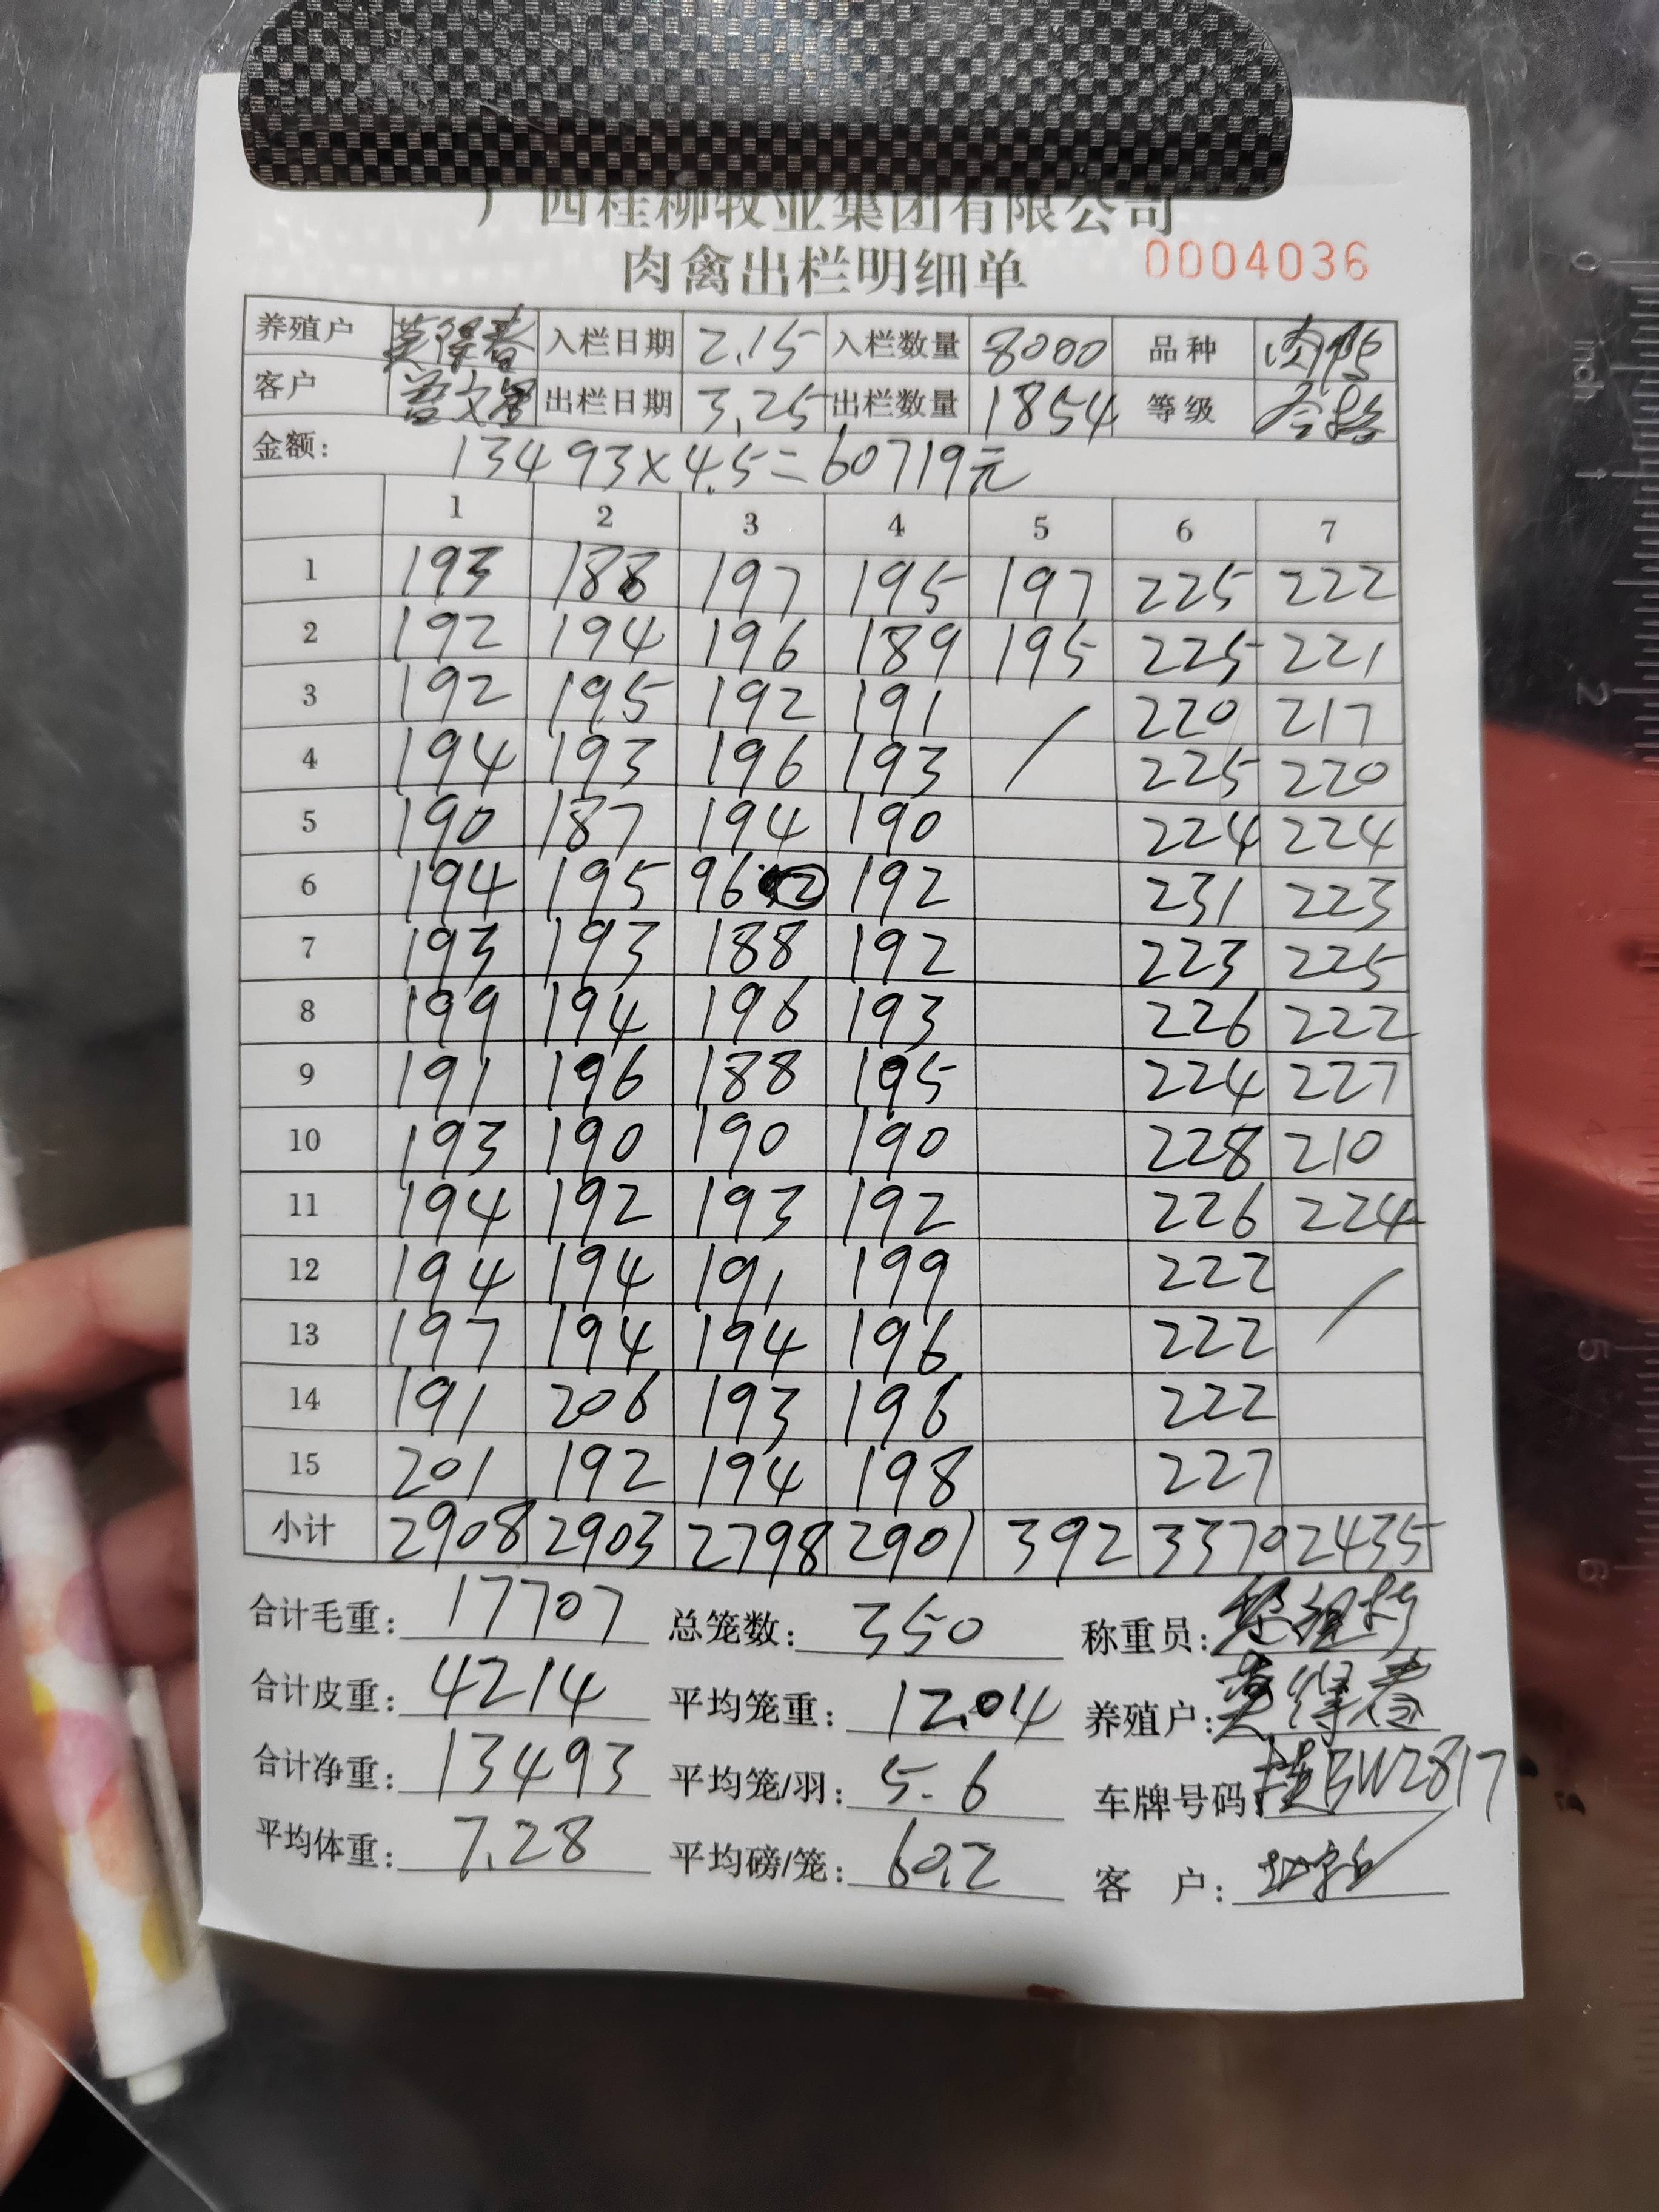 广西桂柳牧业集团有限公司
肉禽出栏明细单 0004036
养殖户 黄得春 入栏日期 2.15 入栏数量 8000 品种 肉鸭
客户 出栏日期 3.25 出栏数量 1854 等级 合格
金额: 13493×4.5=60719元
1 2 3 4 5 6 7
1 193 188 197 195 197 225 222
2 192 194 196 189 195 225 221
3 192 195 192 191 / 220 217
4 194 193 196 193 225 220
5 190 187 194 190 224 224
6 194 195 96 ② 192 231 223
7 193 193 188 192 223 225
8 199 194 196 193 226 222
9 191 196 188 195 224 227
10 193 190 190 190 228 210
11 194 192 193 192 226 224
12 194 194 191 199 222 /
13 197 194 194 196 222
14 191 206 193 196 222
15 201 192 194 198 227
小计 2908 2903 2798 2901 392 3370 2435
合计毛重: 17707 总笼数: 350 称重员:
合计皮重: 4214 平均笼重: 12.04 养殖户: 黄得春
合计净重: 13493 平均笼/羽: 5.6 车牌号码: 桂BW2817
平均体重: 7.28 平均磅/笼: 60.2 客 户:
0 inch 1 2 3 4 5 6